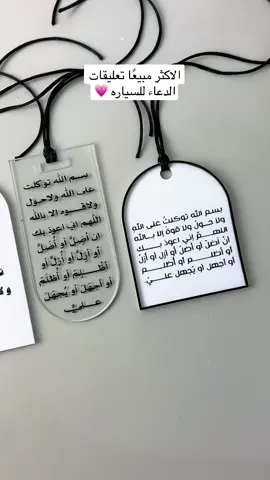 الاكثر مبيعًا تعليقات
الدعاء للسياره 💗
بسم الله توكلت
على الله ولاحول
ولاقوه الا بالله
اللهم اني اعوذ بك
ان أضل أو أُضَل
أو أَزِل أو أُزَل أو
أَظلِم أو أُظلَم
أو أجهَل أو يُجهَل
عليّ
بسم الله توكلت على الله
ولا حول ولا قوة إلا بالله
اللهم إني أعوذ بك
أن أضل أو أضل أو أزل أو أزل
أو أظلم أو أظلم
أو أجهل أو يجهل علي.